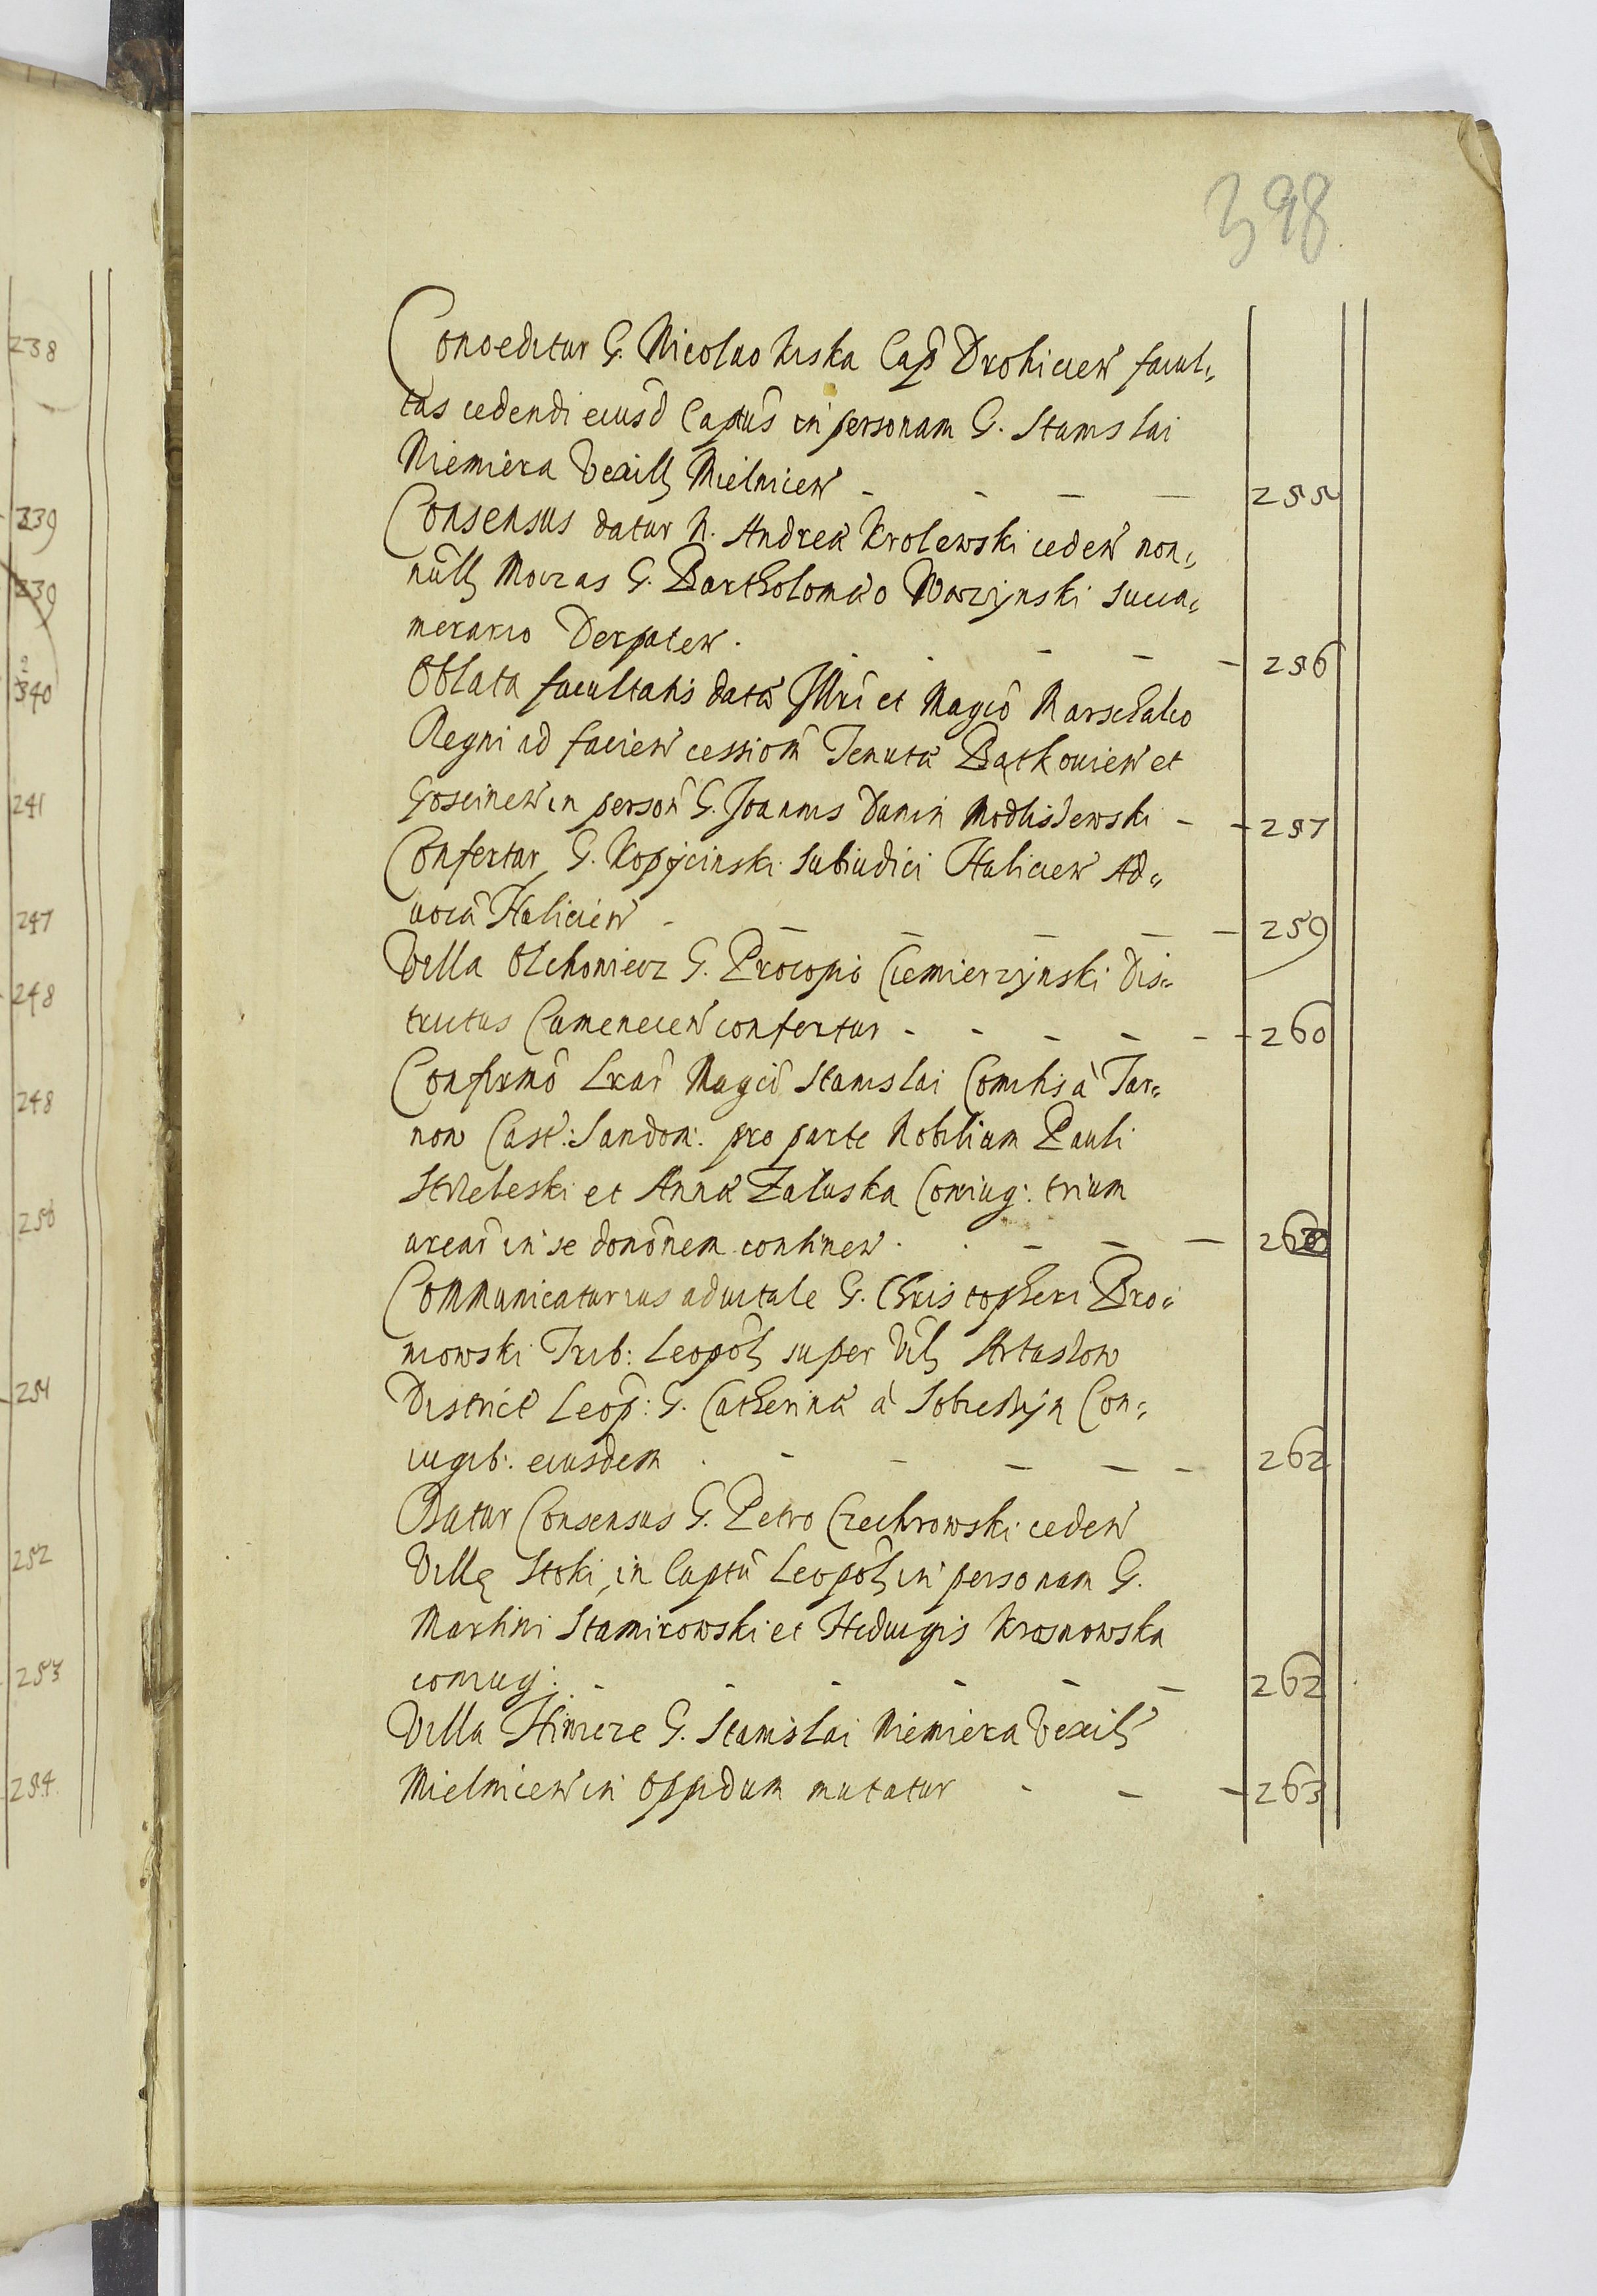 398
Conceditur G. Nicolao Kiska Cap Drohicien facul,,
tas cedendi eiusd Captus in personam G. Stanislai
Niemiera Vexill Mielnicen - - - - 255
Consensus datur N. Andreæ Krolewski ceden non,,
null G. Bartholomæo Wazynski Succa,,
merario Derpaten . - - - - - 256
Oblata facultatis datæ Illri et Magco Marschalco
Regni ad facien cessiom Tenutæ Bątkovicen et
Goscinen in person G. Joannis Danin Modliszewski - - 257
Confertur G. Kopycinski Subiudici Halicien Ad,,
uocã Halicien - - - - - - 259
Villa Olchowiecz G. Procopio Ciemierzynski Dis,,
trictus Camenecen confertur - - - - - - 260
Confirmõ Lrar Magci Stanislai Comitis à Tar,,
now Cast: Sandom: pro parte Nobilium Pauli
Strzeleski et Annæ Zaluska Coniug: trium
arear in se donõnem continen . . - - - 260
Communicatur ius aduitale G. Christopheri Bro,,
niowski Trib: Leopol super Vil Artaszow
District Leop: G. Catherinæ à Sobieszyn Con,,
iugib: eiusdem . - - - - - 262
Datur Consensus G. Petro Czechrowski ceden
Villę Stoki, in Captu Leopol in personam G.
Martini Stamirowski et Heduigis Krosnowska
coniug: - - - - - - 262
Villa G. Stanislai Niemiera Vexil
Mielnicen in Oppidum mutatur - - - 263
238
339
239
2
340
241
247
248
248
250
251
252
253
254